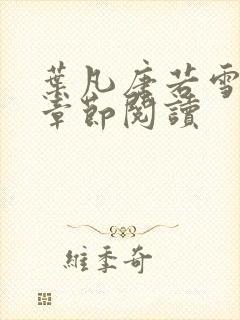 葉凡唐若雪
章節閱讀
維季奇